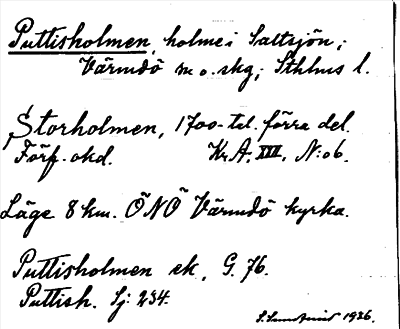 Puttisholmen, holme i Saltsjön;
Värmdö m o. skg; Sthlms l.
Storholmen, 1700-tal. förra del.
Förf. okd. Kr. A. XIII, N:o 6.
Läge 8 km. ÖNÖ Värmdö kyrka.
Puttisholmen ek, G. 76.
Puttish. Sj: 234.
1936.